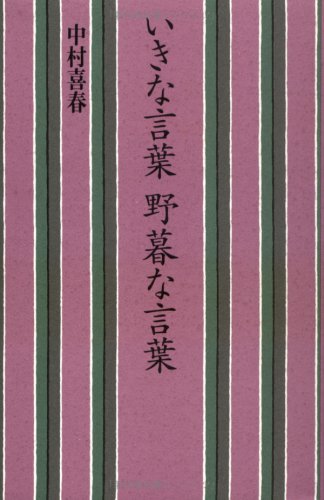 いきな言葉 野暮な言葉
中村喜春